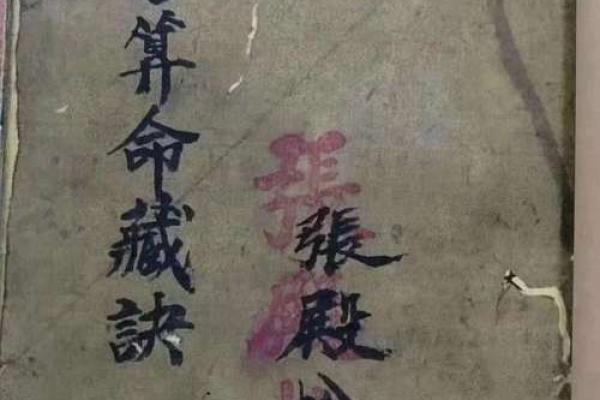 算命藏訣
張殿
張